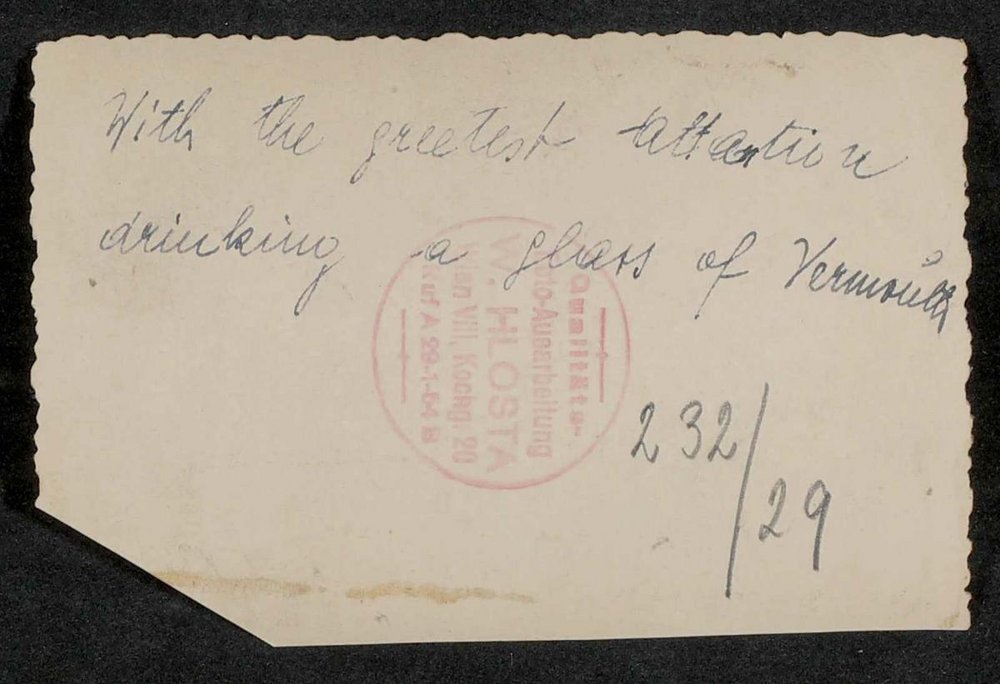 With the greetest attantion
drinking a glass of Vermouth
Qualitäts-
Foto-Ausarbeitung
W. HLOSTA
Wien VIII, Kochg. 20
Ruf A 29-1-54 B
232/29